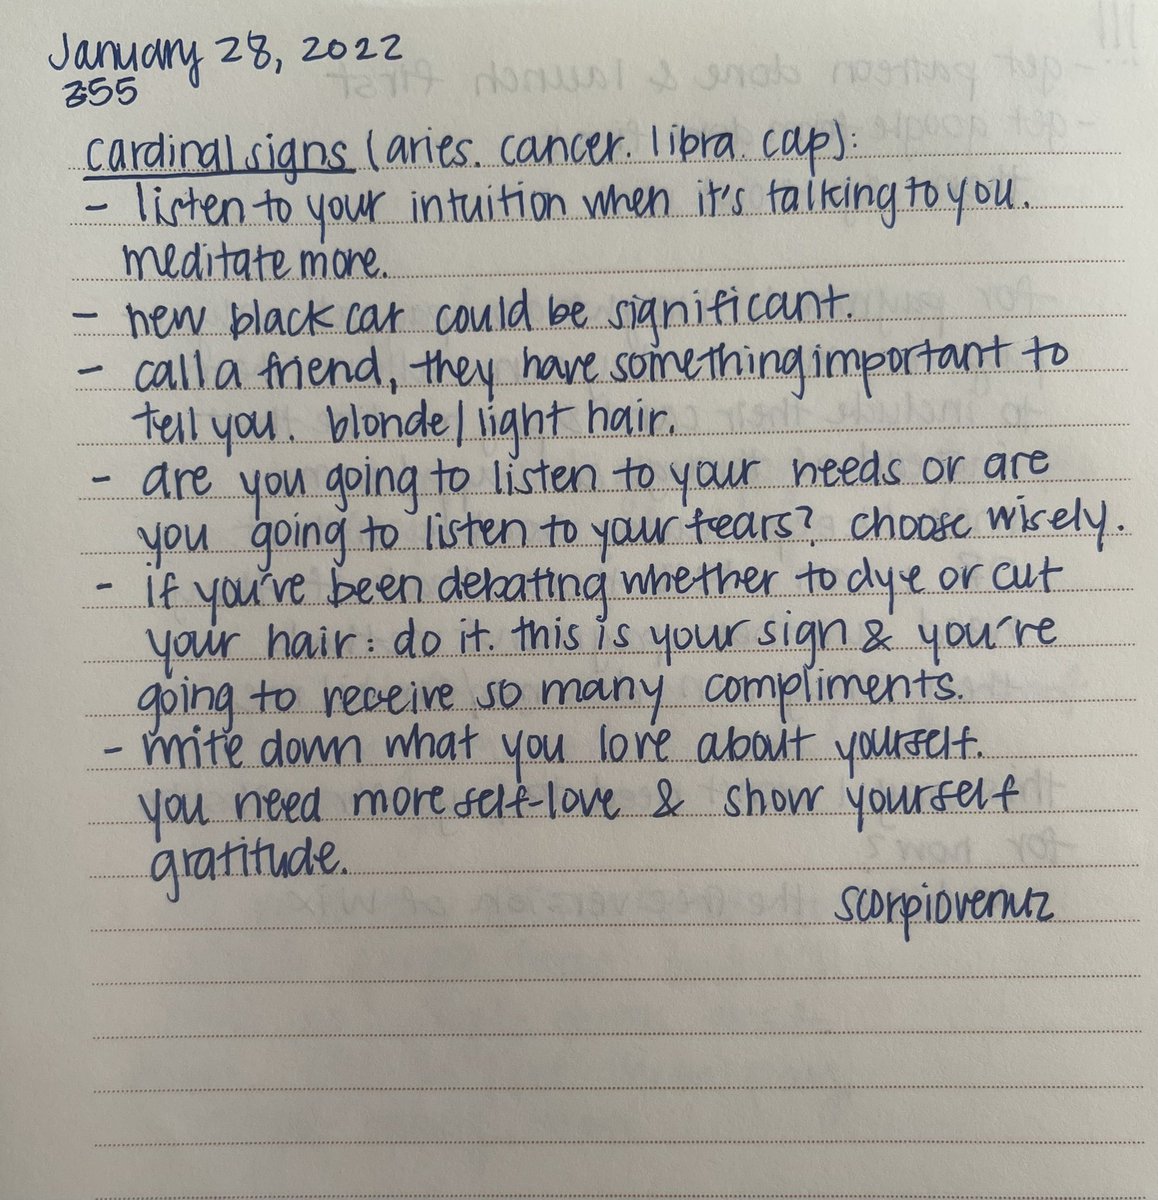 January 28, 2022
355
cardinal signs (aries. cancer. libra. cap):
- listen to your intuition when it's talking to you.
meditate more.
- new black car could be significant.
- call a friend, they have something important to
tell you. blonde/light hair.
- are you going to listen to your needs or are
you going to listen to your fears? choose wisely.
- if you've been debating whether to dye or cut
your hair: do it. this is your sign & you're
going to receive so many compliments.
- write down what you love about yourself.
you need more self-love & show yourself
gratitude.
scorpiovenuz